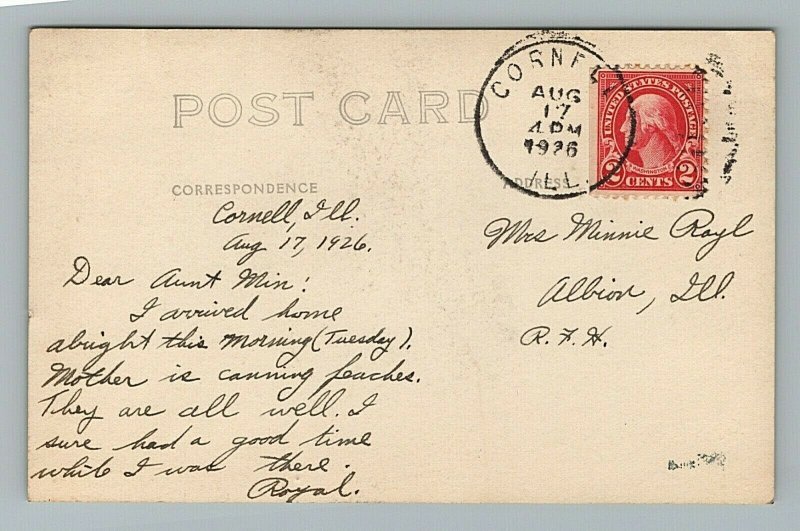 POST CARD
CORNELL
AUG
17
4 PM
1926
ILL.
UNITED STATES POSTAGE
WASHINGTON
2 CENTS 2
CORRESPONDENCE
ADDRESS
Cornell, Ill.
Aug 17, 1926.
Dear Aunt Min!
I arrived home
alright this morning (Tuesday).
Mother is canning peaches.
They are all well. I
sure had a good time
while I was there.
Royal.
Mrs Minnie Royl
Albion, Ill.
R. F. H.